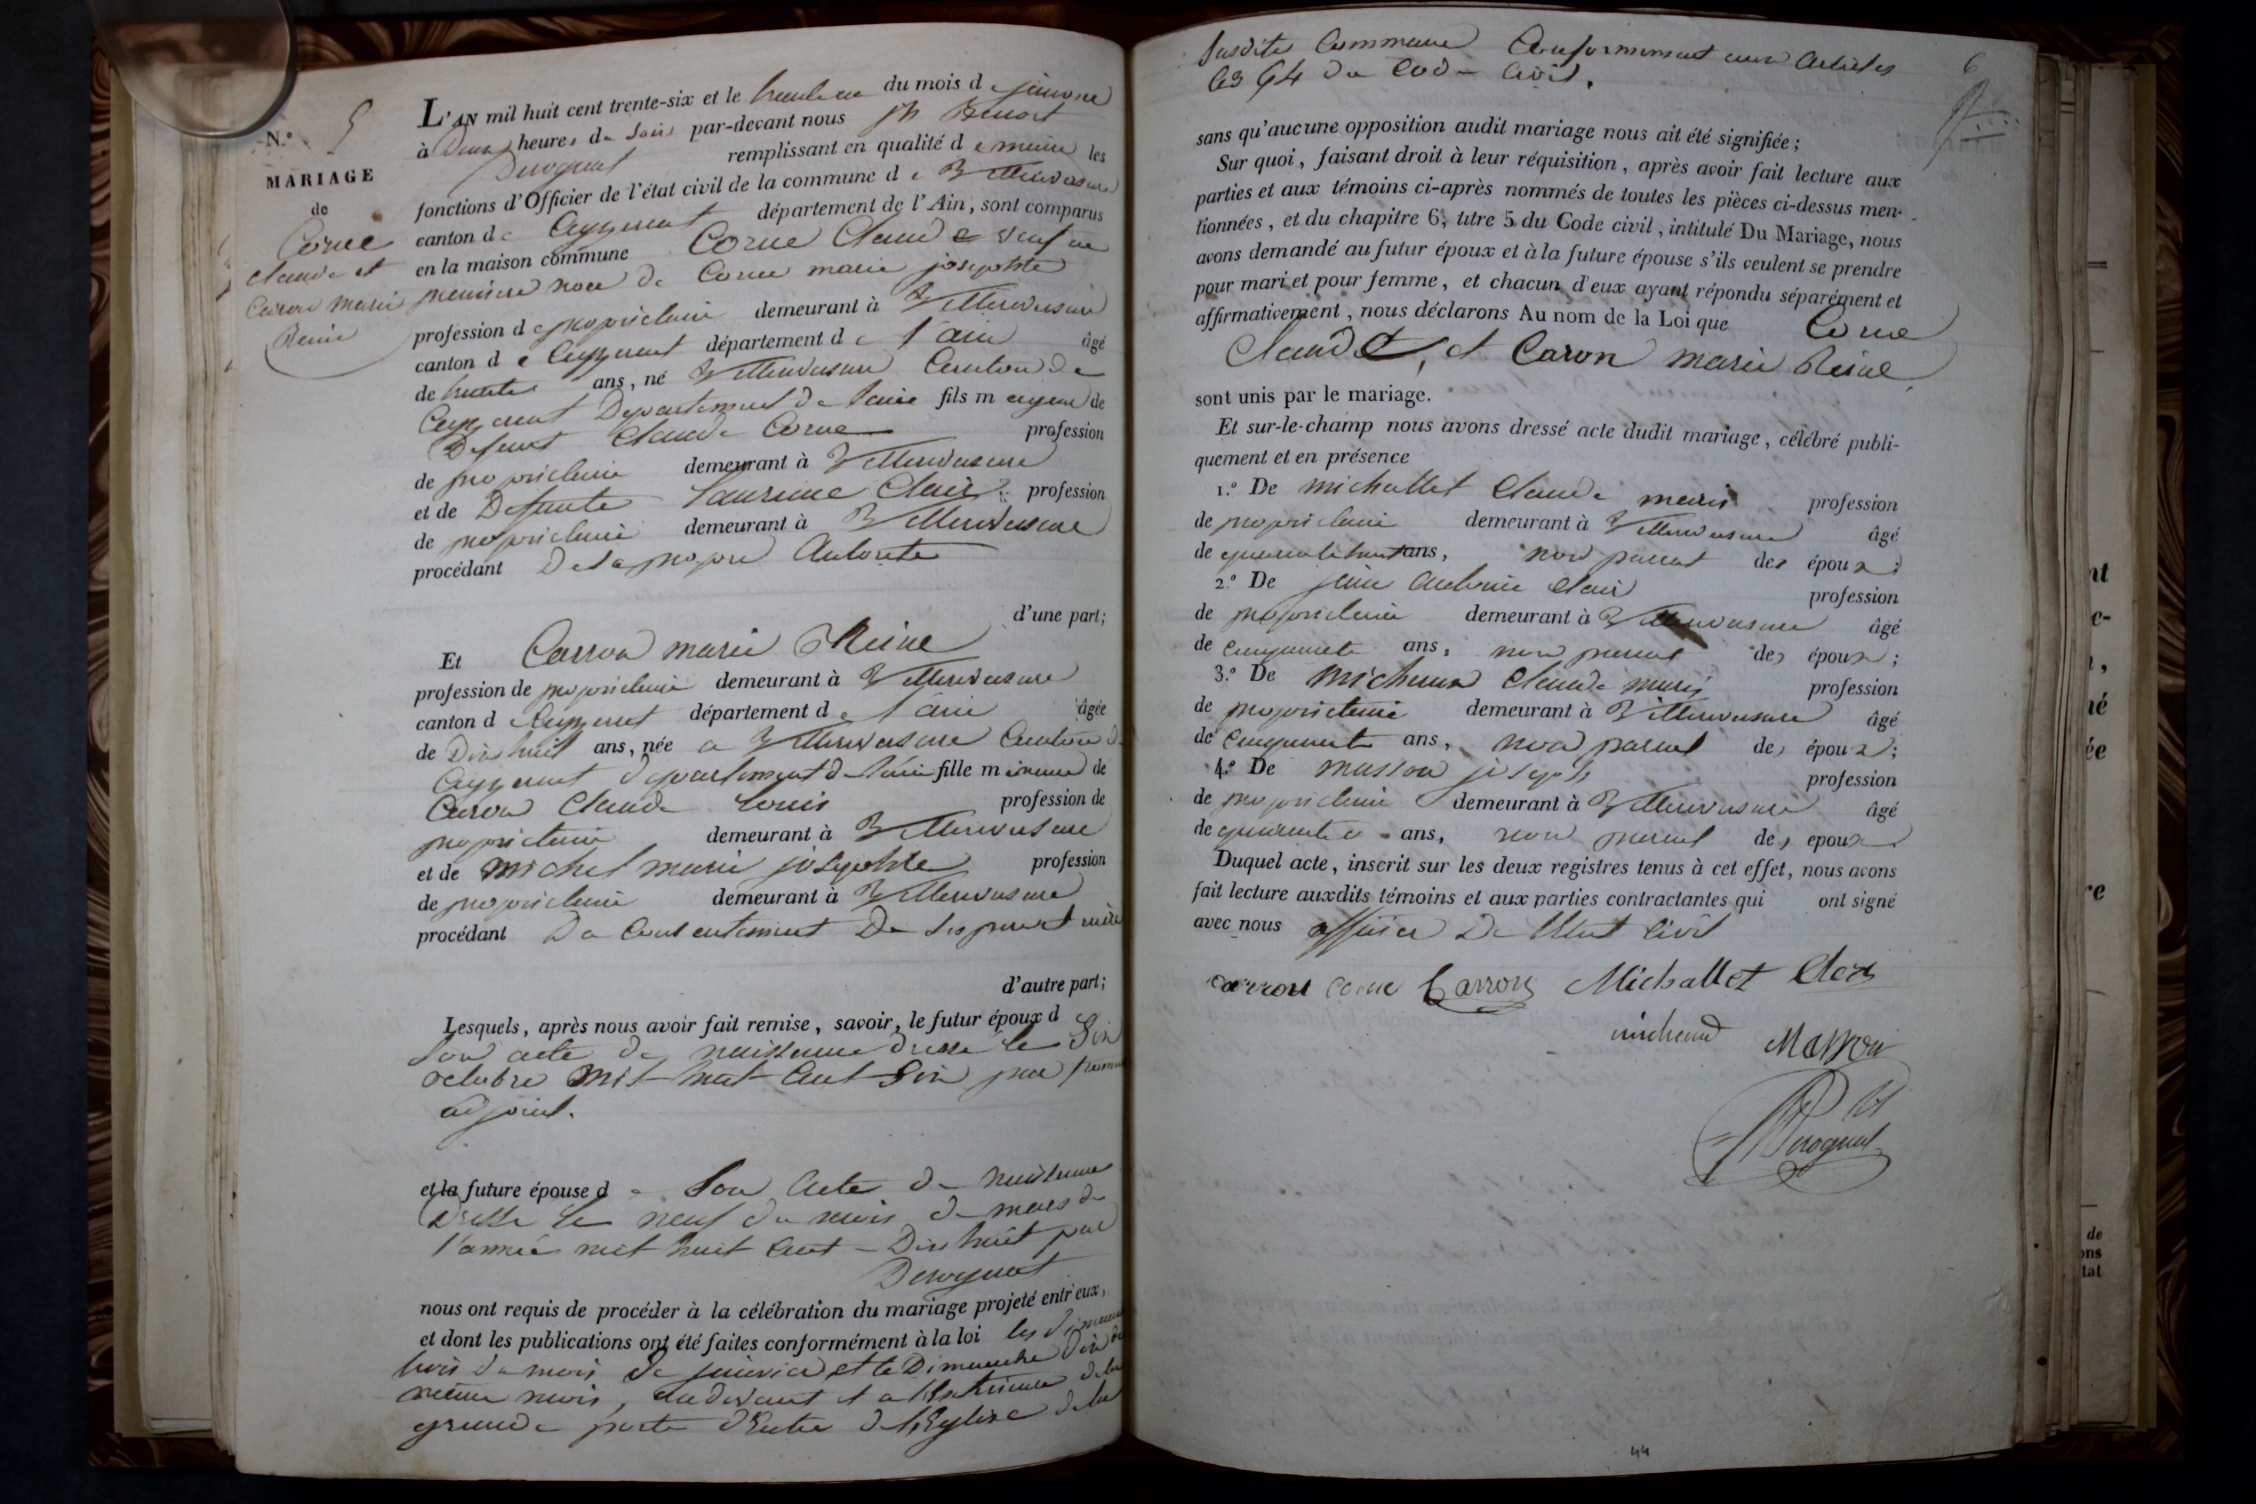 N.° 5
MARIAGE
de
Corue
Claude et
Caron marie
Reine
L'AN mil huit cent trente-six et le trente un du mois de janvier
à Deux heures du soir par-devant nous Benoit
Derognat remplissant en qualité de maire les
fonctions d'Officier de l'état civil de la commune de Villereversure
canton de Ceyzeriat département de l'Ain, sont comparus
en la maison commune Corue Claude veuf en
première noce de Corue marie josephte
profession de propriétaire demeurant à Villereversure
canton de Ceyzeriat département de l'ain âgé
de trente ans, né Villereversure Canton de
Ceyzeriat Departement de l'ain fils majeur de
Defunt Claude Corue profession
de propriétaire demeurant à Villereversure
et de Defunte Laurence Clair profession
de propriétaire demeurant à Villereversure
procédant De sa propre Autorité
d'une part;
Et Carron marie Reine
profession de propriétaire demeurant à Villereversure
canton de Ceyzeriat département de l'ain âgée
de Dix huit ans, née a Villereversure Canton de
Ceyzeriat département de l'ain fille mineure de
Caron Claude Louis profession de
propriétaire demeurant à Villereversure
et de Michel marie josephte profession
de propriétaire demeurant à Villereversure
procédant Du Consentement De ses pere et mère
d'autre part;
Lesquels, après nous avoir fait remise, savoir, le futur époux d
son acte de naissance dressé le Six
octobre mil huit Cent Six par
adjoint.
et la future épouse de Son Acte de naissance
Dressé le neuf du mois de mars de
l'année mil huit Cent Dix huit par
Derognat
nous ont requis de procéder à la célébration du mariage projeté entr'eux,
et dont les publications ont été faites conformément à la loi les dimanche
trois du mois de janvier et le Dimanche Dix du
même mois, audevant et a l'Exterieure de la
grande porte d'Entrée de l'Eglise de la
6
susdite Commune Conformement aux Articles
63 64 du Code Civil.
sans qu'aucune opposition audit mariage nous ait été signifiée;
Sur quoi, faisant droit à leur réquisition, après avoir fait lecture aux
parties et aux témoins ci-après nommés de toutes les pièces ci-dessus men-
tionnées, et du chapitre 6, titre 5 du Code civil, intitulé Du Mariage, nous
avons demandé au futur époux et à la future épouse s'ils veulent se prendre
pour mari et pour femme, et chacun d'eux ayant répondu séparément et
affirmativement, nous déclarons Au nom de la Loi que Corue
Claude, et Caron marie Reine
sont unis par le mariage.
Et sur-le-champ nous avons dressé acte dudit mariage, célébré publi-
quement et en présence
1.° De Michallet Claude marie profession
de propriétaire demeurant à Villereversure âgé
de quarante huit ans, non parent des époux;
2.° De Clair profession
de propriétaire demeurant à Villereversure âgé
de Cinquante ans, non parent des époux;
3.° De Michaud Claude marie profession
de propriétaire demeurant à Villereversure âgé
de Cinquante ans, non parent des époux;
4.° De Masson joseph profession
de propriétaire demeurant à Villereversure âgé
de quarante ans, non parent des époux
Duquel acte, inscrit sur les deux registres tenus à cet effet, nous avons
fait lecture auxdits témoins et aux parties contractantes qui ont signé
avec nous officier De l'Etat Civil
carron Corue Carron Michallet Clair
michaud Masson
Derognat
44
nt
e-
né
ée
re
de
ons
tat